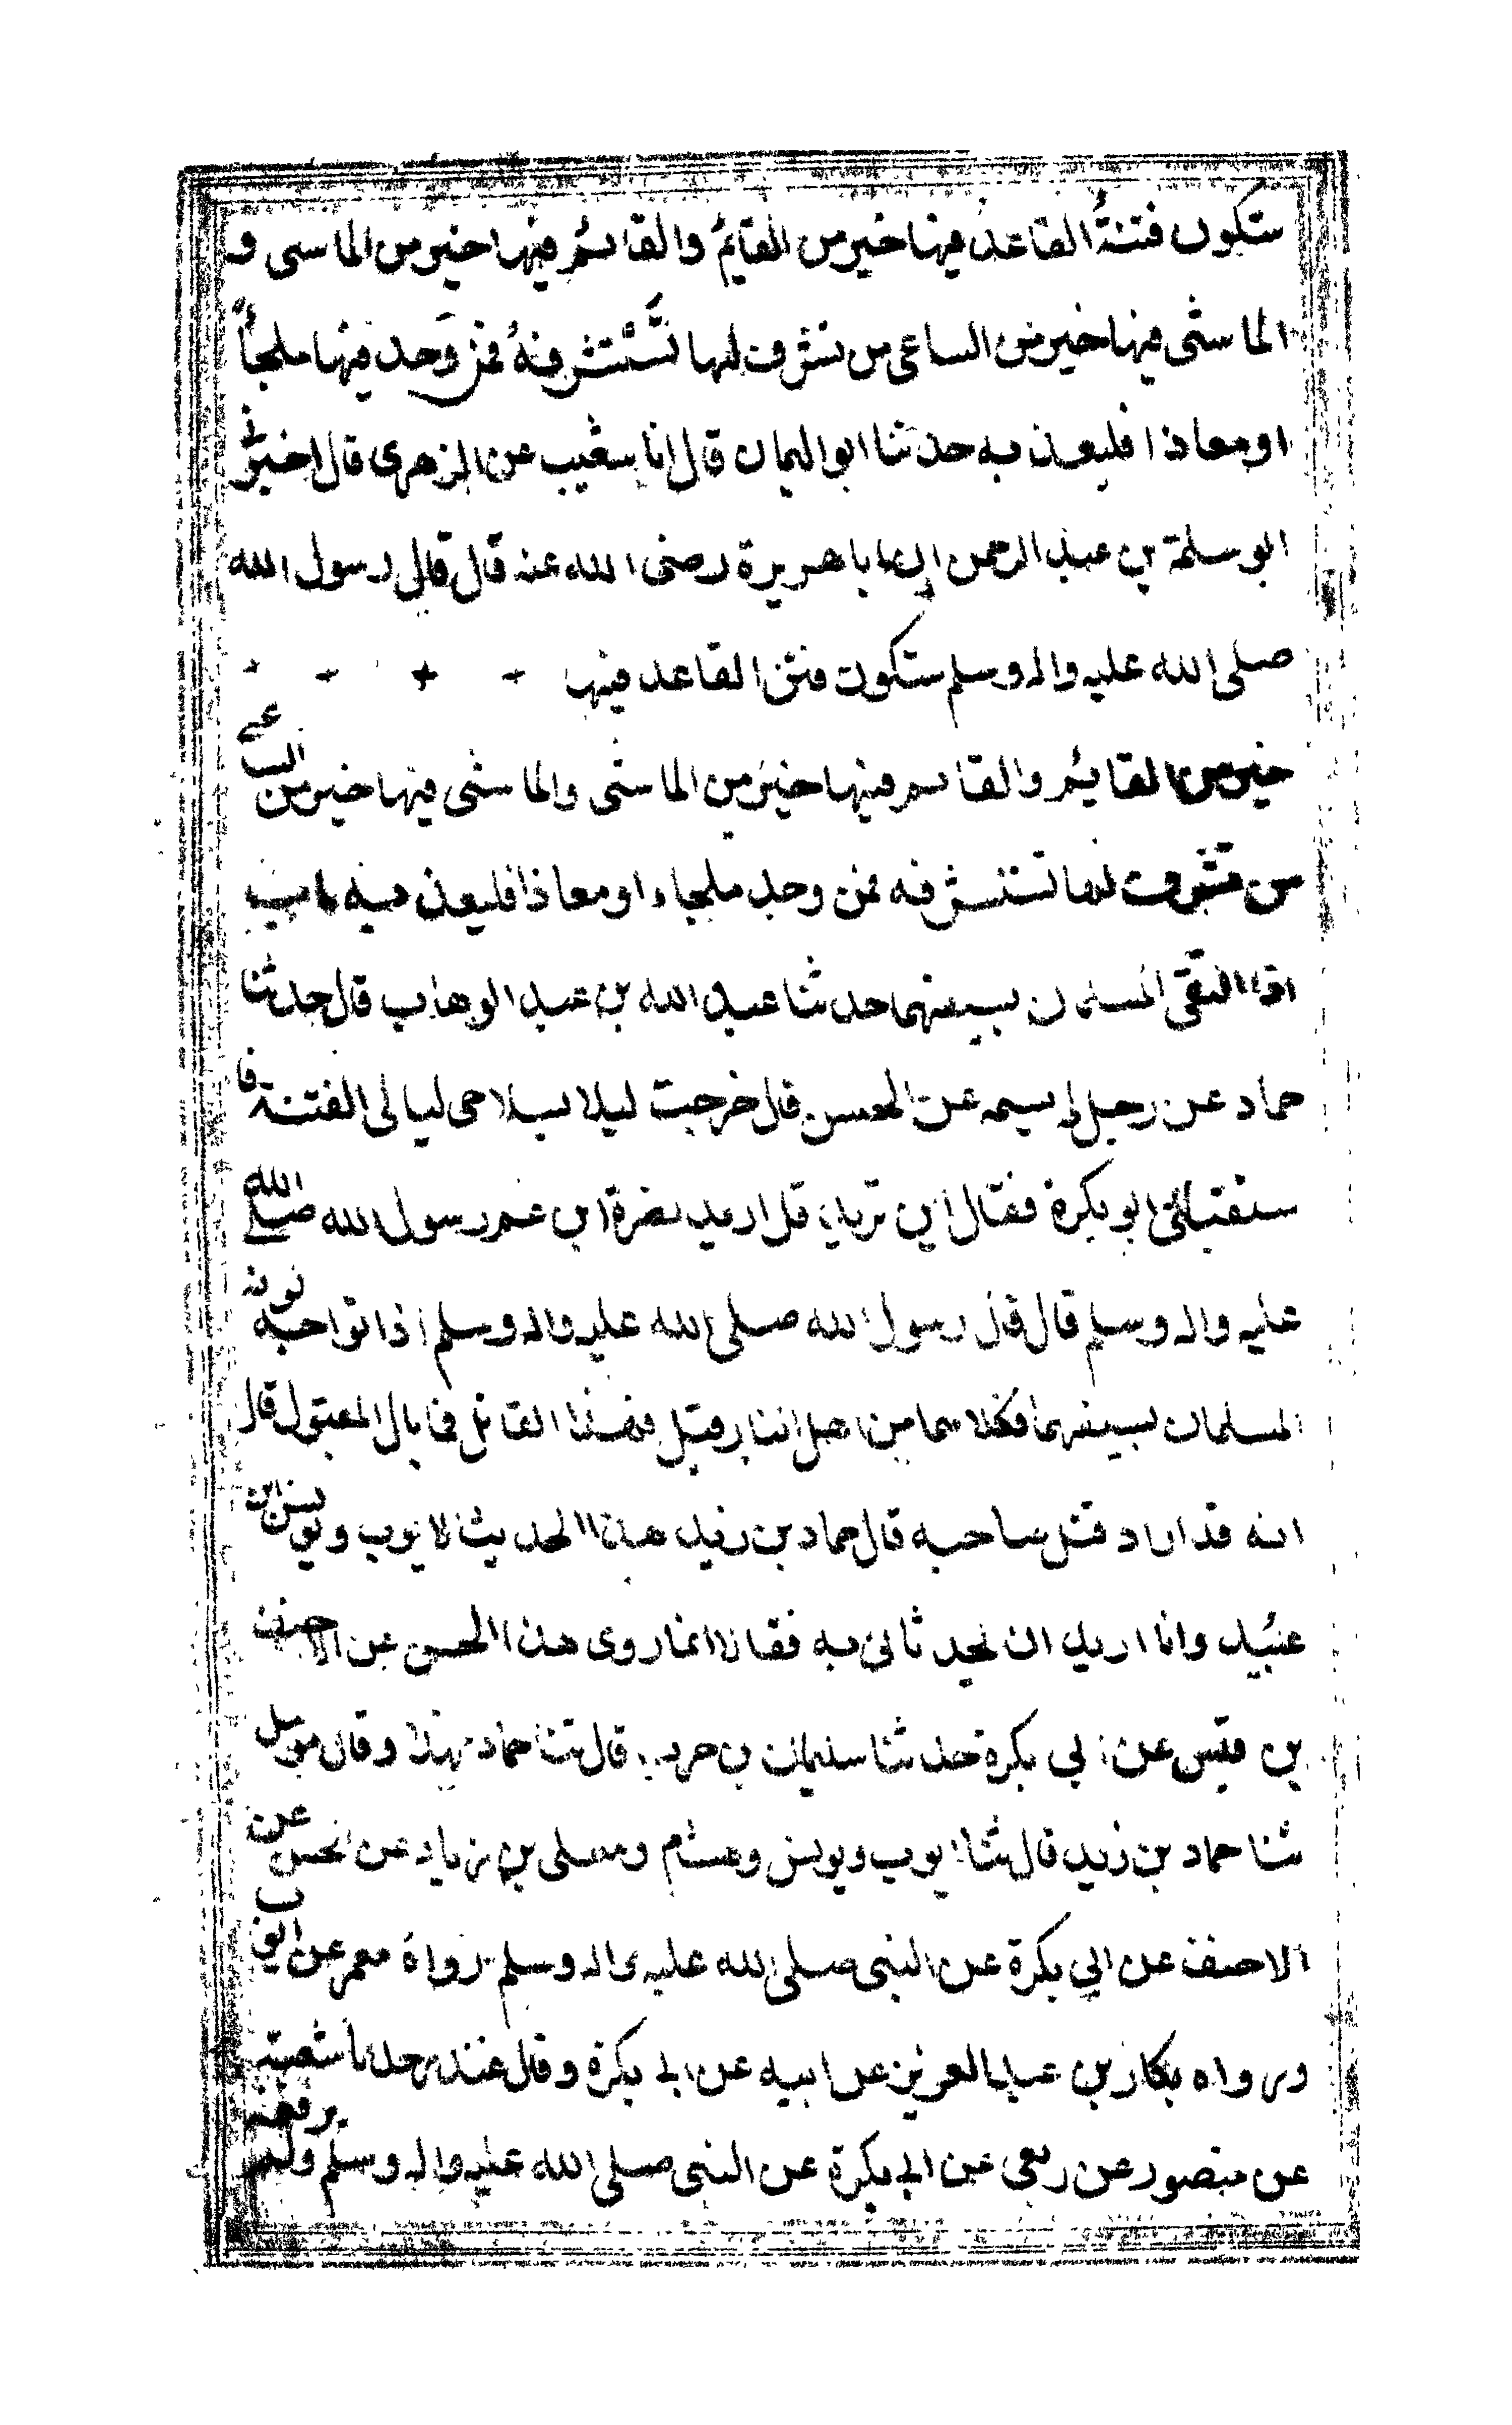 ستكون فتنةُ القاعد فيها خير من القايمُ والقائم فيها خير من الماشى و
الماشى فيها خير من الساعى من تشرف لها تَسْتشرفهُ فمن وَجد فيها ملجأً
او معاذا فليعذ به حدثنا ابو اليمان قال انا شعيب عن الزهرى قال اخبرنى
ابو سلمة بن عبد الرحمن ان ابا هريرة رضى الله عنه قال قال رسول الله
صلى الله عليه واله وسلم ستكون فتن القاعد فيها
خير من القائم والقائم فيها خير من الماشى والماشى فيها خير من الساعى
من تشرف لها تستشرفه فمن وجد ملجاء او معاذا فليعذ به باب
اذا التقى المسلمان بسيفهما حدثنا عبد الله بن عبد الوهاب قال حدثنا
حماد عن رجل لم يسمه عن الحسن قال خرجت ليلا بسلاحى ليالى الفتنة فا
ستقبلنى ابو بكرة فقال اين تريد قل اريد نصرة ابن عم رسول الله صلى الله
عليه واله وسلم قال قال رسول الله صلى الله عليه واله وسلم اذا تواجه
المسلمان بسيفهما فكلاهما من اهل النار قيل فهذا القاتل فما بال المقتول قال
انه قد اراد قتل صاحبه قال حماد بن زيد هذا الحديث لايوب ويونس بن
عبيد وانا اريد ان يحدثانى به فقالا انما روى هذا الحسن عن الاحنف
بن قيس عن ابى بكرة حدثنا سليمان بن حرب قال ثنا حماد بهذا وقال مومل
ثنا حماد بن زيد قال ثنا ايوب ويونس وهشام ومعلى بن زياد عن الحسن عن
الاحنف عن ابى بكرة عن النبى صلى الله عليه واله وسلم رواه معمر عن ايوب
ورواه بكار بن عبد العزيز عن ابيه عن ابى بكرة وقال غندر حدثنا شعبة
عن منصور عن ربعى عن ابى بكرة عن النبى صلى الله عليه واله وسلم ولم يرفعه